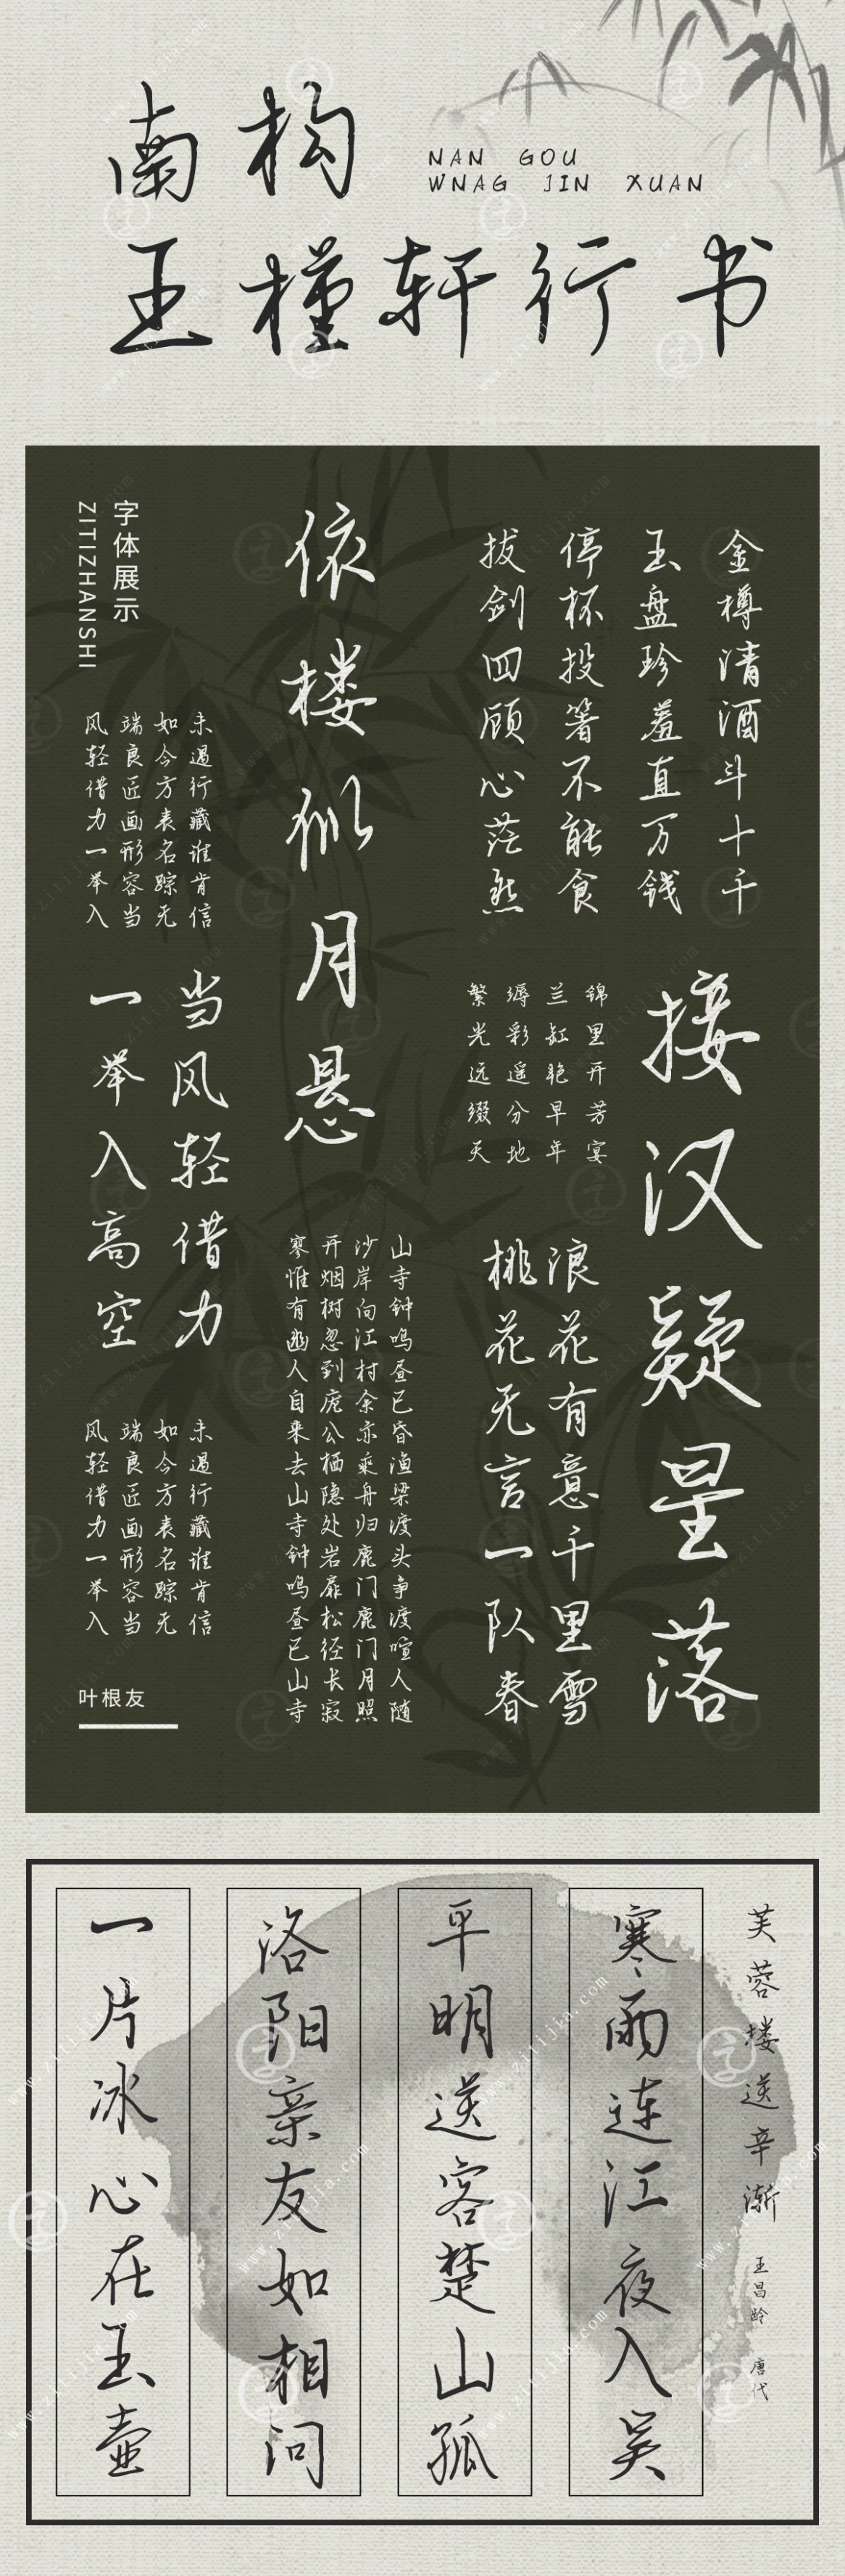 南构
NAN GOU
WNAG JIN XUAN
王槿轩行书
金樽清酒斗十千
玉盘珍羞直万钱
停杯投箸不能食
拔剑四顾心茫然
接汉疑星落
锦里开芳宴
兰缸艳早年
缛彩遥分地
繁光远缀天
浪花有意千里雪
桃花无言一队春
依楼似月悬
山寺钟鸣昼已昏渔梁渡头争渡喧人随
沙岸向江村余亦乘舟归鹿门鹿门月照
开烟树忽到庞公栖隐处岩扉松径长寂
寥惟有幽人自来去山寺钟鸣昼已山寺
字体展示
ZITIZHANSHI
未遇行藏谁肯信
如今方表名踪无
端良匠画形容当
风轻借力一举入
当风轻借力
一举入高空
未遇行藏谁肯信
如今方表名踪无
端良匠画形容当
风轻借力一举入
叶根友
芙蓉楼送辛渐
王昌龄 唐代
寒雨连江夜入吴
平明送客楚山孤
洛阳亲友如相问
一片冰心在玉壶
www.zitijia.com